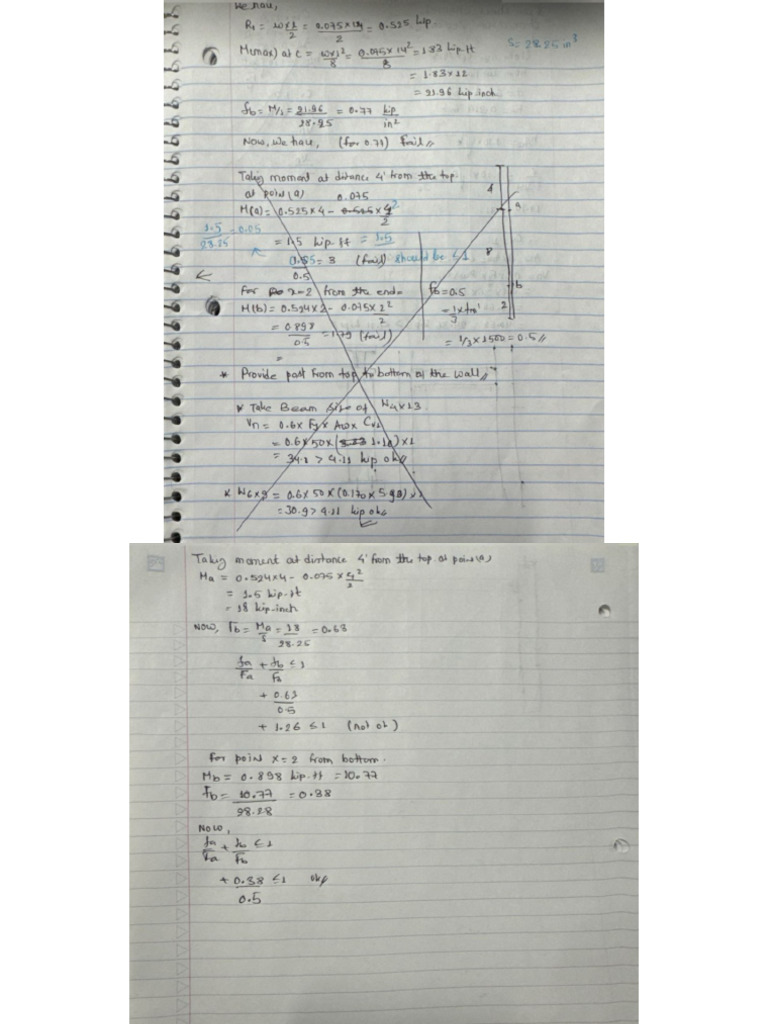 We have,
R₁ = w×l/2 = 0.075×14/2 = 0.525 kip
S = 28.25 in³
M(max) at c = w×l²/8 = 0.075×14²/8 = 1.83 kip.ft
= 1.83×12
= 21.96 kip.inch
fb = M/s = 21.96/28.25 = 0.77 kip/in²
Now, we have, (for 0.77) Fail
Taking moment at distance 4' from the top.
at point (a)
M(a) = 0.525×4 - 0.075×4²/2
1.5/28.25 = 0.05
= 1.5 kip.ft = 1.5
/0.5 = 3 (fail) should be ≤1
For x=2 from the end=
M(b) = 0.524×2 - 0.075×2²/2
= 0.898/0.5 = 1.79 (fail)
=
4
a
8
b
2
Fb = 0.5
= 1/3 × fm'
= 1/3 × 1500 = 0.5
* Provide post from top to bottom of the wall
* Take Beam size of W4×13
Vn = 0.6× Fy× Aw× Cv1
= 0.6×50×( 1.16)×1
= 34.8 > 4.11 kip ok
* W6×9 = 0.6×50×(0.170×5.90)×1
= 30.9 > 4.11 kip ok
Taking moment at distance 4' from the top at point (a)
Ma = 0.524×4 - 0.075×4²/2
= 1.5 kip.ft
= 18 kip-inch
Now, Fb = Ma/s = 18/28.25 = 0.63
fa/Fa + fb/Fb ≤ 1
+ 0.63/0.5
+ 1.26 ≤ 1 (not ok)
For point x = 2 from bottom.
Mb = 0.898 kip.ft = 10.77
Fb = 10.77/28.28 = 0.38
Now,
fa/Fa + fb/Fb ≤ 1
+ 0.38/0.5 ≤ 1 okp